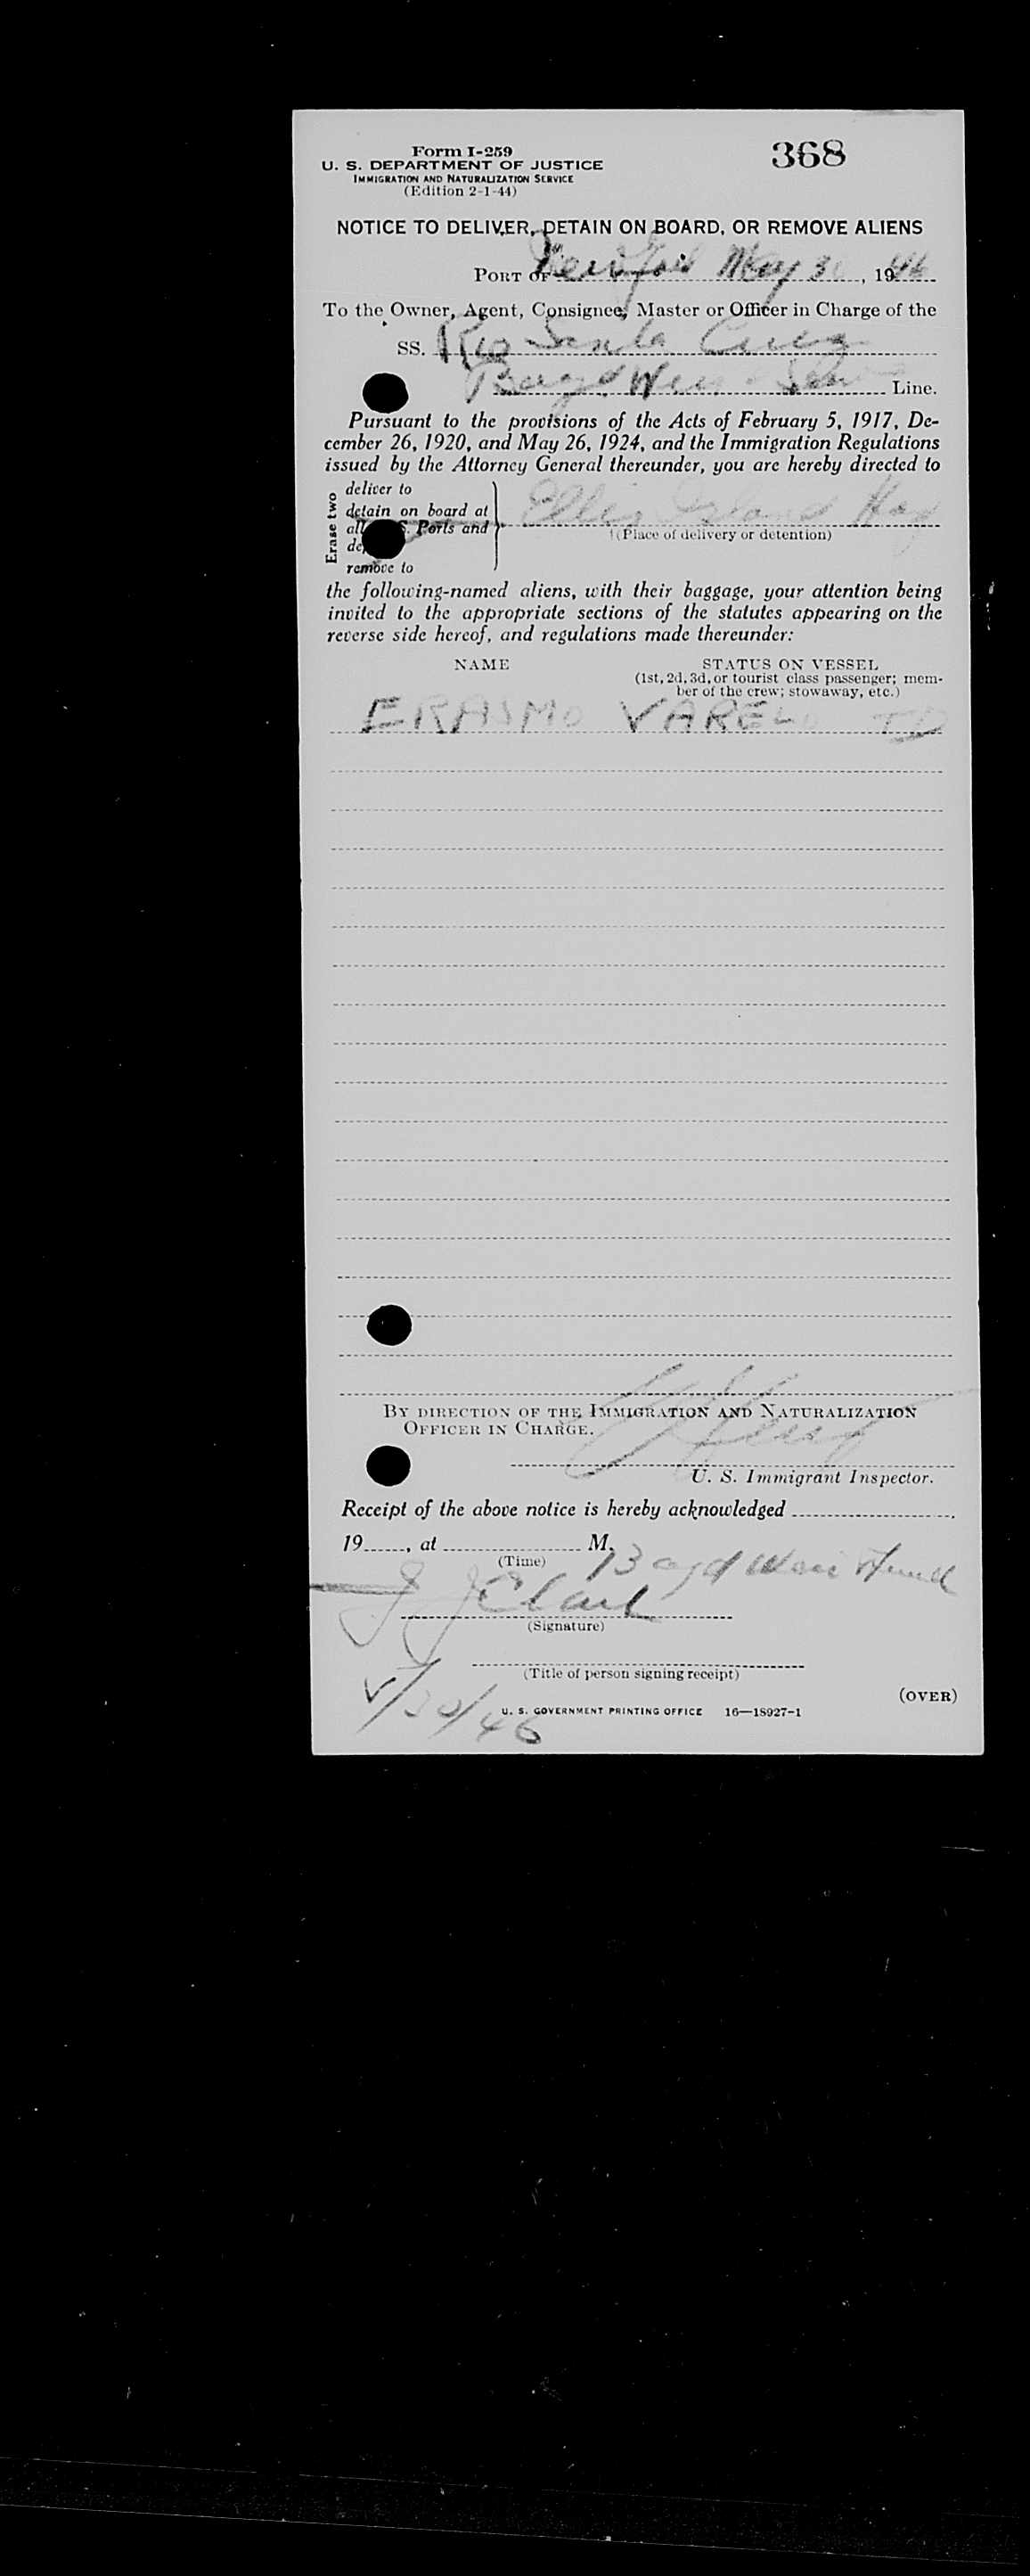 Form I-259
368
U. S. DEPARTMENT OF JUSTICE
IMMIGRATION AND NATURALIZATION SERVICE
(Edition 2-1-44)
NOTICE TO DELIVER, DETAIN ON BOARD, OR REMOVE ALIENS
PORT OF New York May 30, 1946
To the Owner, Agent, Consignee, Master or Officer in Charge of the
SS. Rio Santa Cruz
Boyd Weir Line.
Pursuant to the provisions of the Acts of February 5, 1917, De-
cember 26, 1920, and May 26, 1924, and the Immigration Regulations
issued by the Attorney General thereunder, you are hereby directed to
Erase two
deliver to
detain on board at
Ports and
remove to
Ellis Island
(Place of delivery or detention)
the following-named aliens, with their baggage, your attention being
invited to the appropriate sections of the statutes appearing on the
reverse side hereof, and regulations made thereunder:
NAME
STATUS ON VESSEL
(1st, 2d, 3d, or tourist class passenger; mem-
ber of the crew; stowaway, etc.)
ERASMO VARELO TD
BY DIRECTION OF THE IMMIGRATION AND NATURALIZATION
OFFICER IN CHARGE.
U. S. Immigrant Inspector.
Receipt of the above notice is hereby acknowledged
19......, at .................... M.
(Time)
Boyd Weir
J J Clark
(Signature)
(Title of person signing receipt)
5/30/46
(OVER)
U. S. GOVERNMENT PRINTING OFFICE 16—18927-1